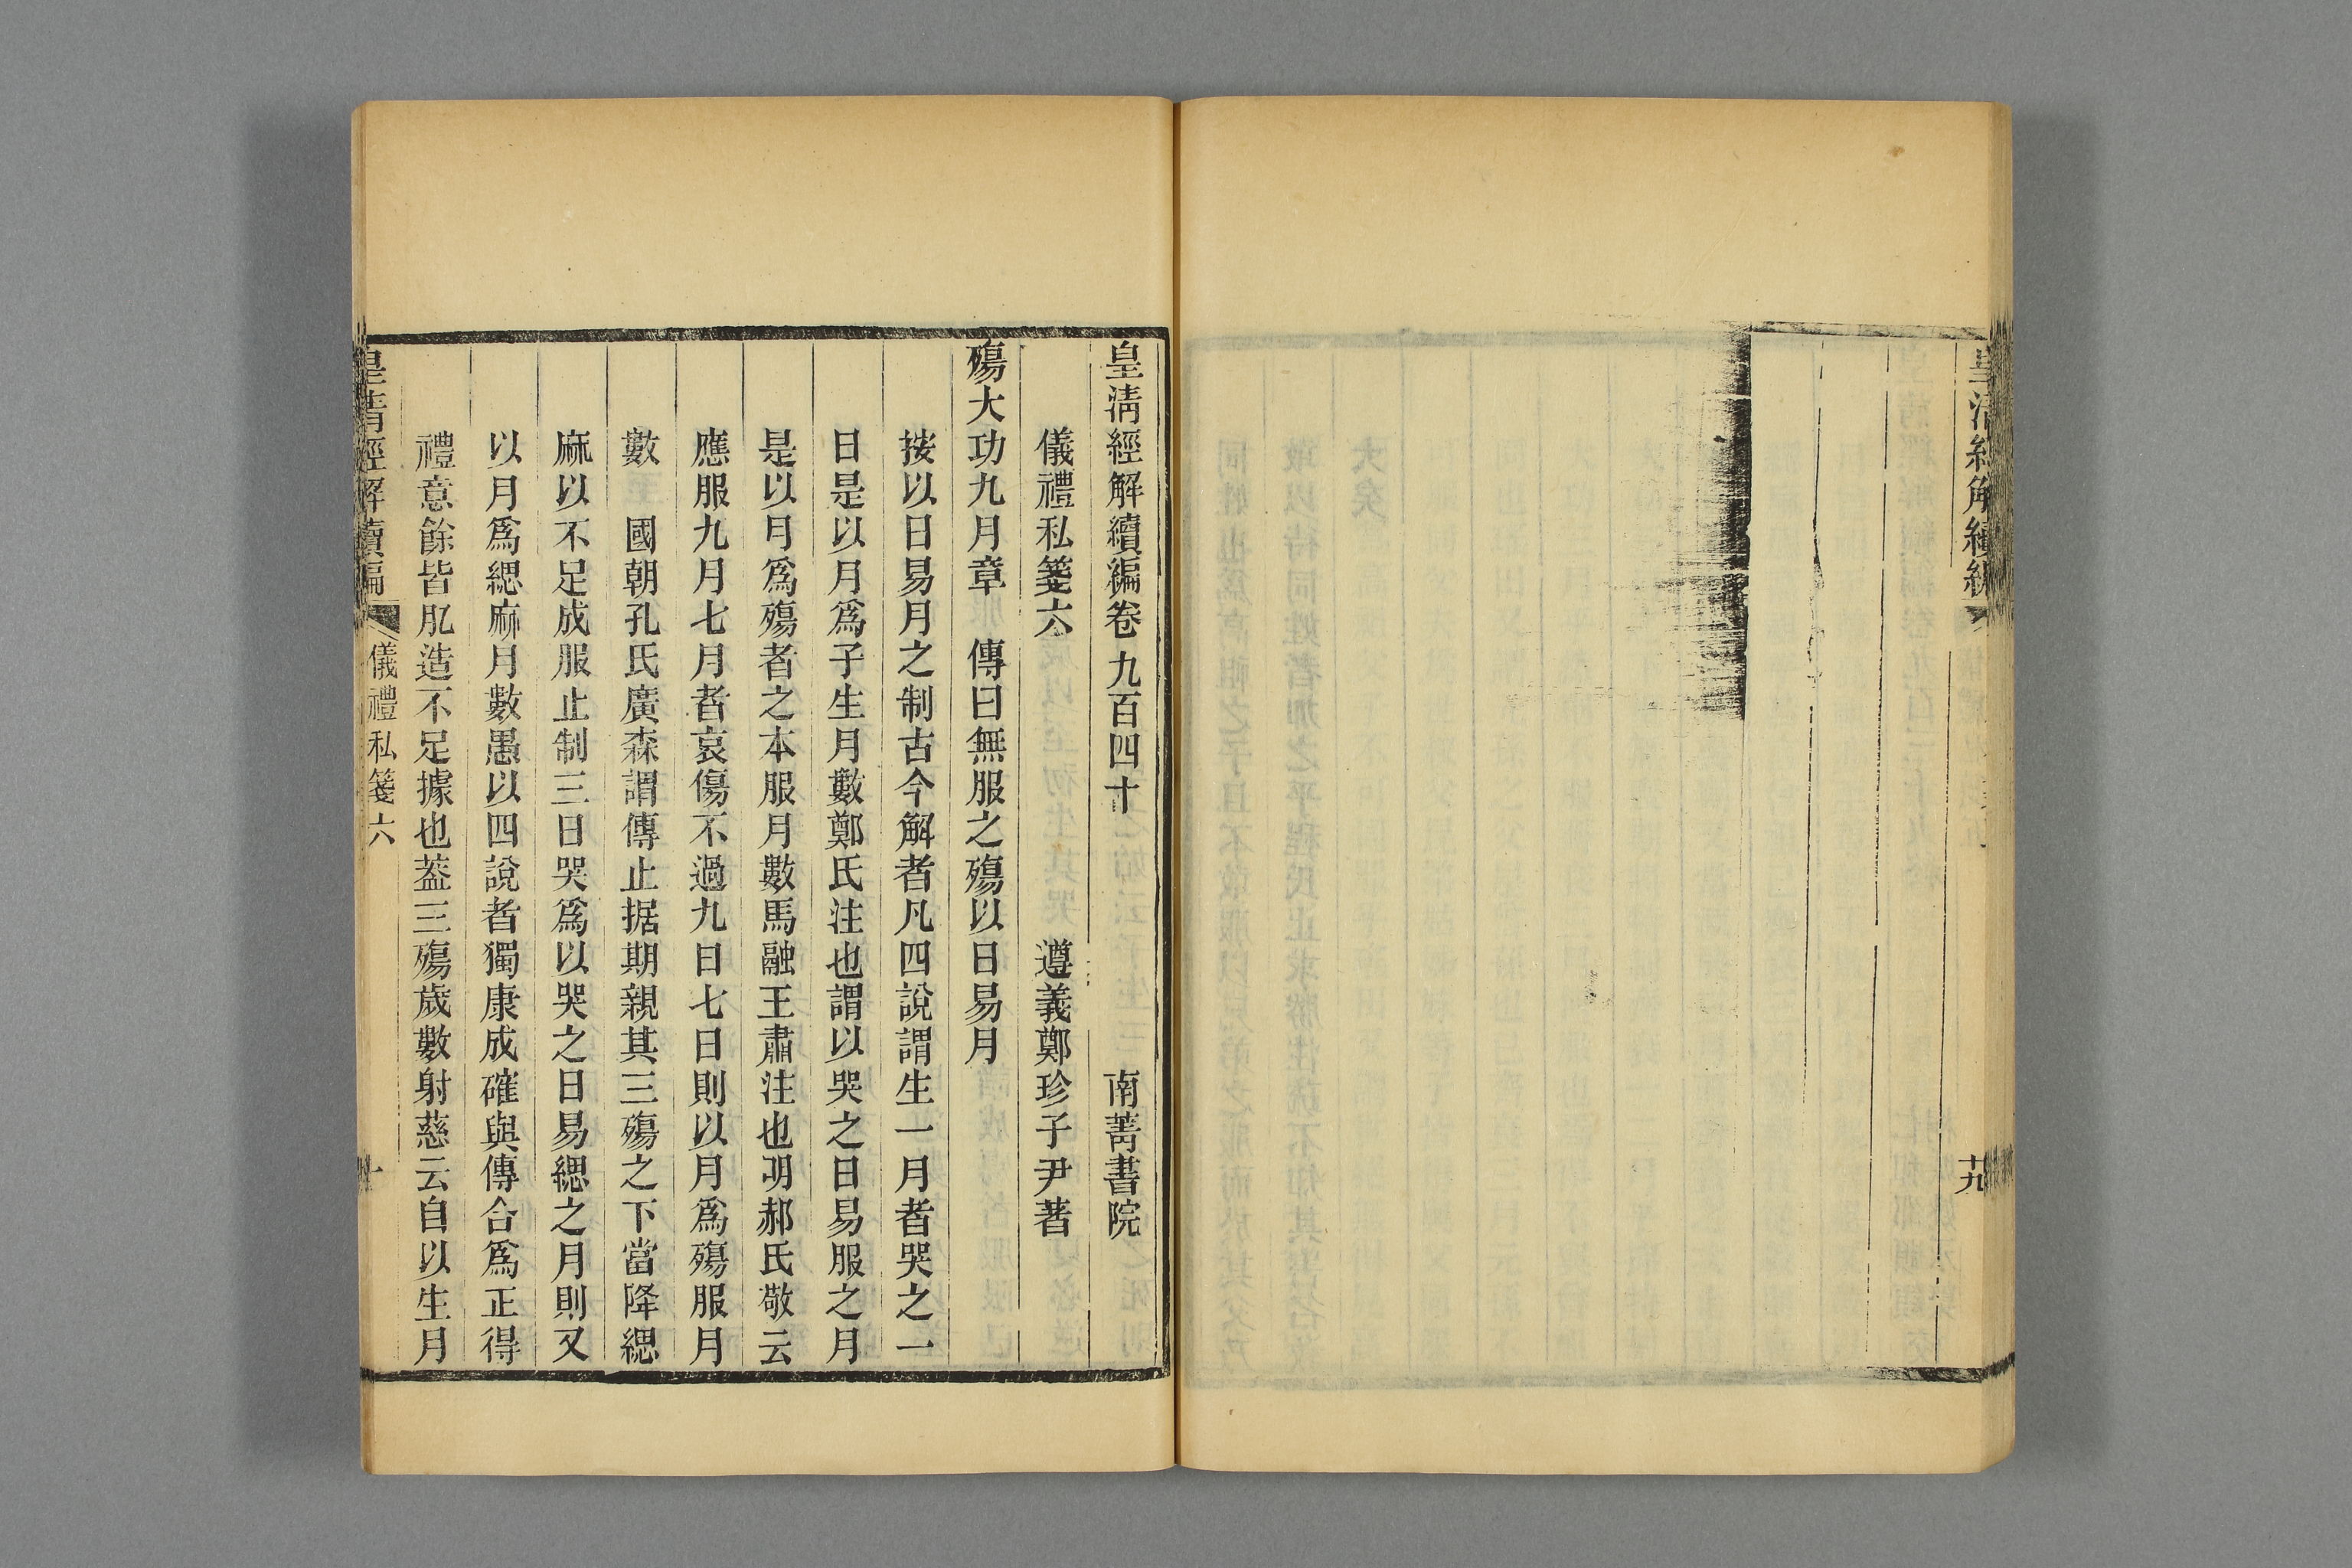 皇清經解續編
十九
皇清經解續編卷九百四十 南菁書院
儀禮私箋六 遵義鄭珍子尹著
殤大功九月章 傳曰無服之殤以日易月
按以日易月之制古今解者凡四說謂生一月者哭之一
日是以月爲子生月數鄭氏注也謂以哭之日易服之月
是以月爲殤者之本服月數馬融王肅注也明郝氏敬云
應服九月七月者哀傷不過九日七日則以月爲殤服月
數 國朝孔氏廣森謂傳止据期親其三殤之下當降緦
麻以不足成服止制三日哭爲以哭之日易緦之月則又
以月爲緦麻月數愚以四說者獨康成確與傳合爲正得
禮意餘皆肊造不足據也葢三殤歲數射慈云自以生月
皇清經解續編 儀禮私箋六 一